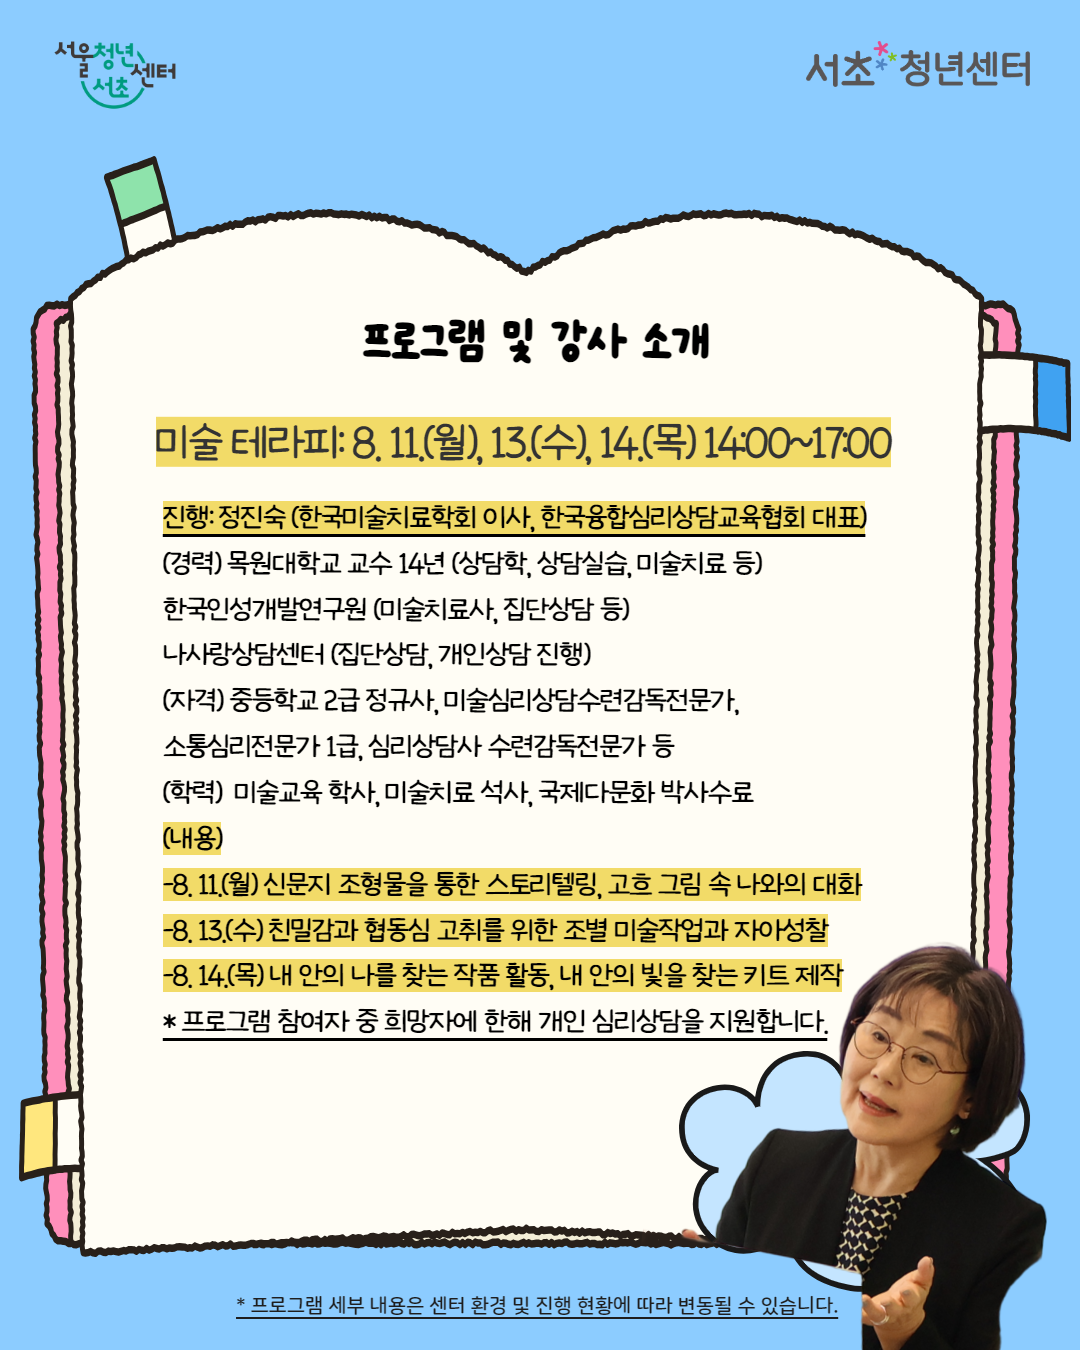 서울청년센터 서초
서초 청년센터
프로그램 및 강사 소개
미술 테라피: 8. 11.(월), 13.(수), 14.(목) 14:00~17:00
진행: 정진숙 (한국미술치료학회 이사, 한국융합심리상담교육협회 대표)
(경력) 목원대학교 교수 14년 (상담학, 상담실습, 미술치료 등)
한국인성개발연구원 (미술치료사, 집단상담 등)
나사랑상담센터 (집단상담, 개인상담 진행)
(자격) 중등학교 2급 정규사, 미술심리상담수련감독전문가,
소통심리전문가 1급, 심리상담사 수련감독전문가 등
(학력) 미술교육 학사, 미술치료 석사, 국제다문화 박사수료
(내용)
-8. 11.(월) 신문지 조형물을 통한 스토리텔링, 고흐 그림 속 나와의 대화
-8. 13.(수) 친밀감과 협동심 고취를 위한 조별 미술작업과 자아성찰
-8. 14.(목) 내 안의 나를 찾는 작품 활동, 내 안의 빛을 찾는 키트 제작
* 프로그램 참여자 중 희망자에 한해 개인 심리상담을 지원합니다.
* 프로그램 세부 내용은 센터 환경 및 진행 현황에 따라 변동될 수 있습니다.